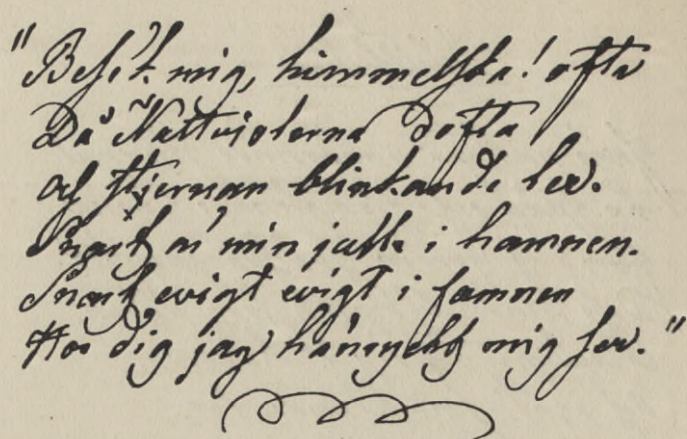 "Besök mig, himmelska! ofta
Då Nattviolerna dofta
och stjernan blinkande ler.
Snart är min julle i hamnen.
Snart evigt evigt i famnen
Hos dig jag hänryckt mig ser."